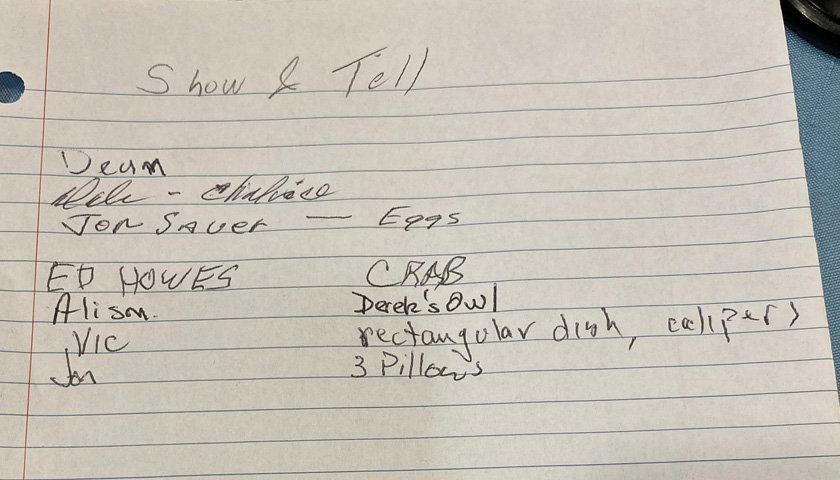 Show & Tell
Dean
Dale -
Jon Sauer — Eggs
ED HOWES CRAB
Alison. Derek's Owl
Vic rectangular dish, calipers
Jon 3 Pillows